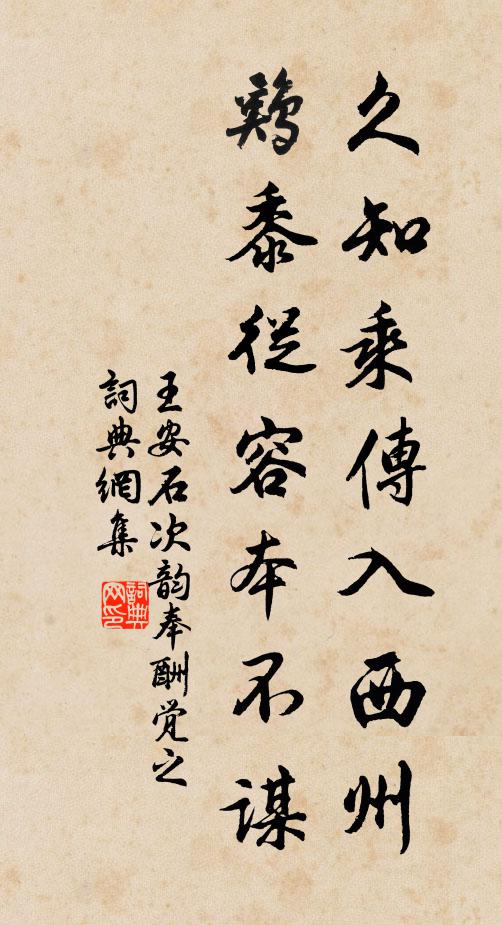 久知乘傳入西州
鷄黍從容本不謀
王安石次韵奉酬觉之
詞典網集
詞典网印